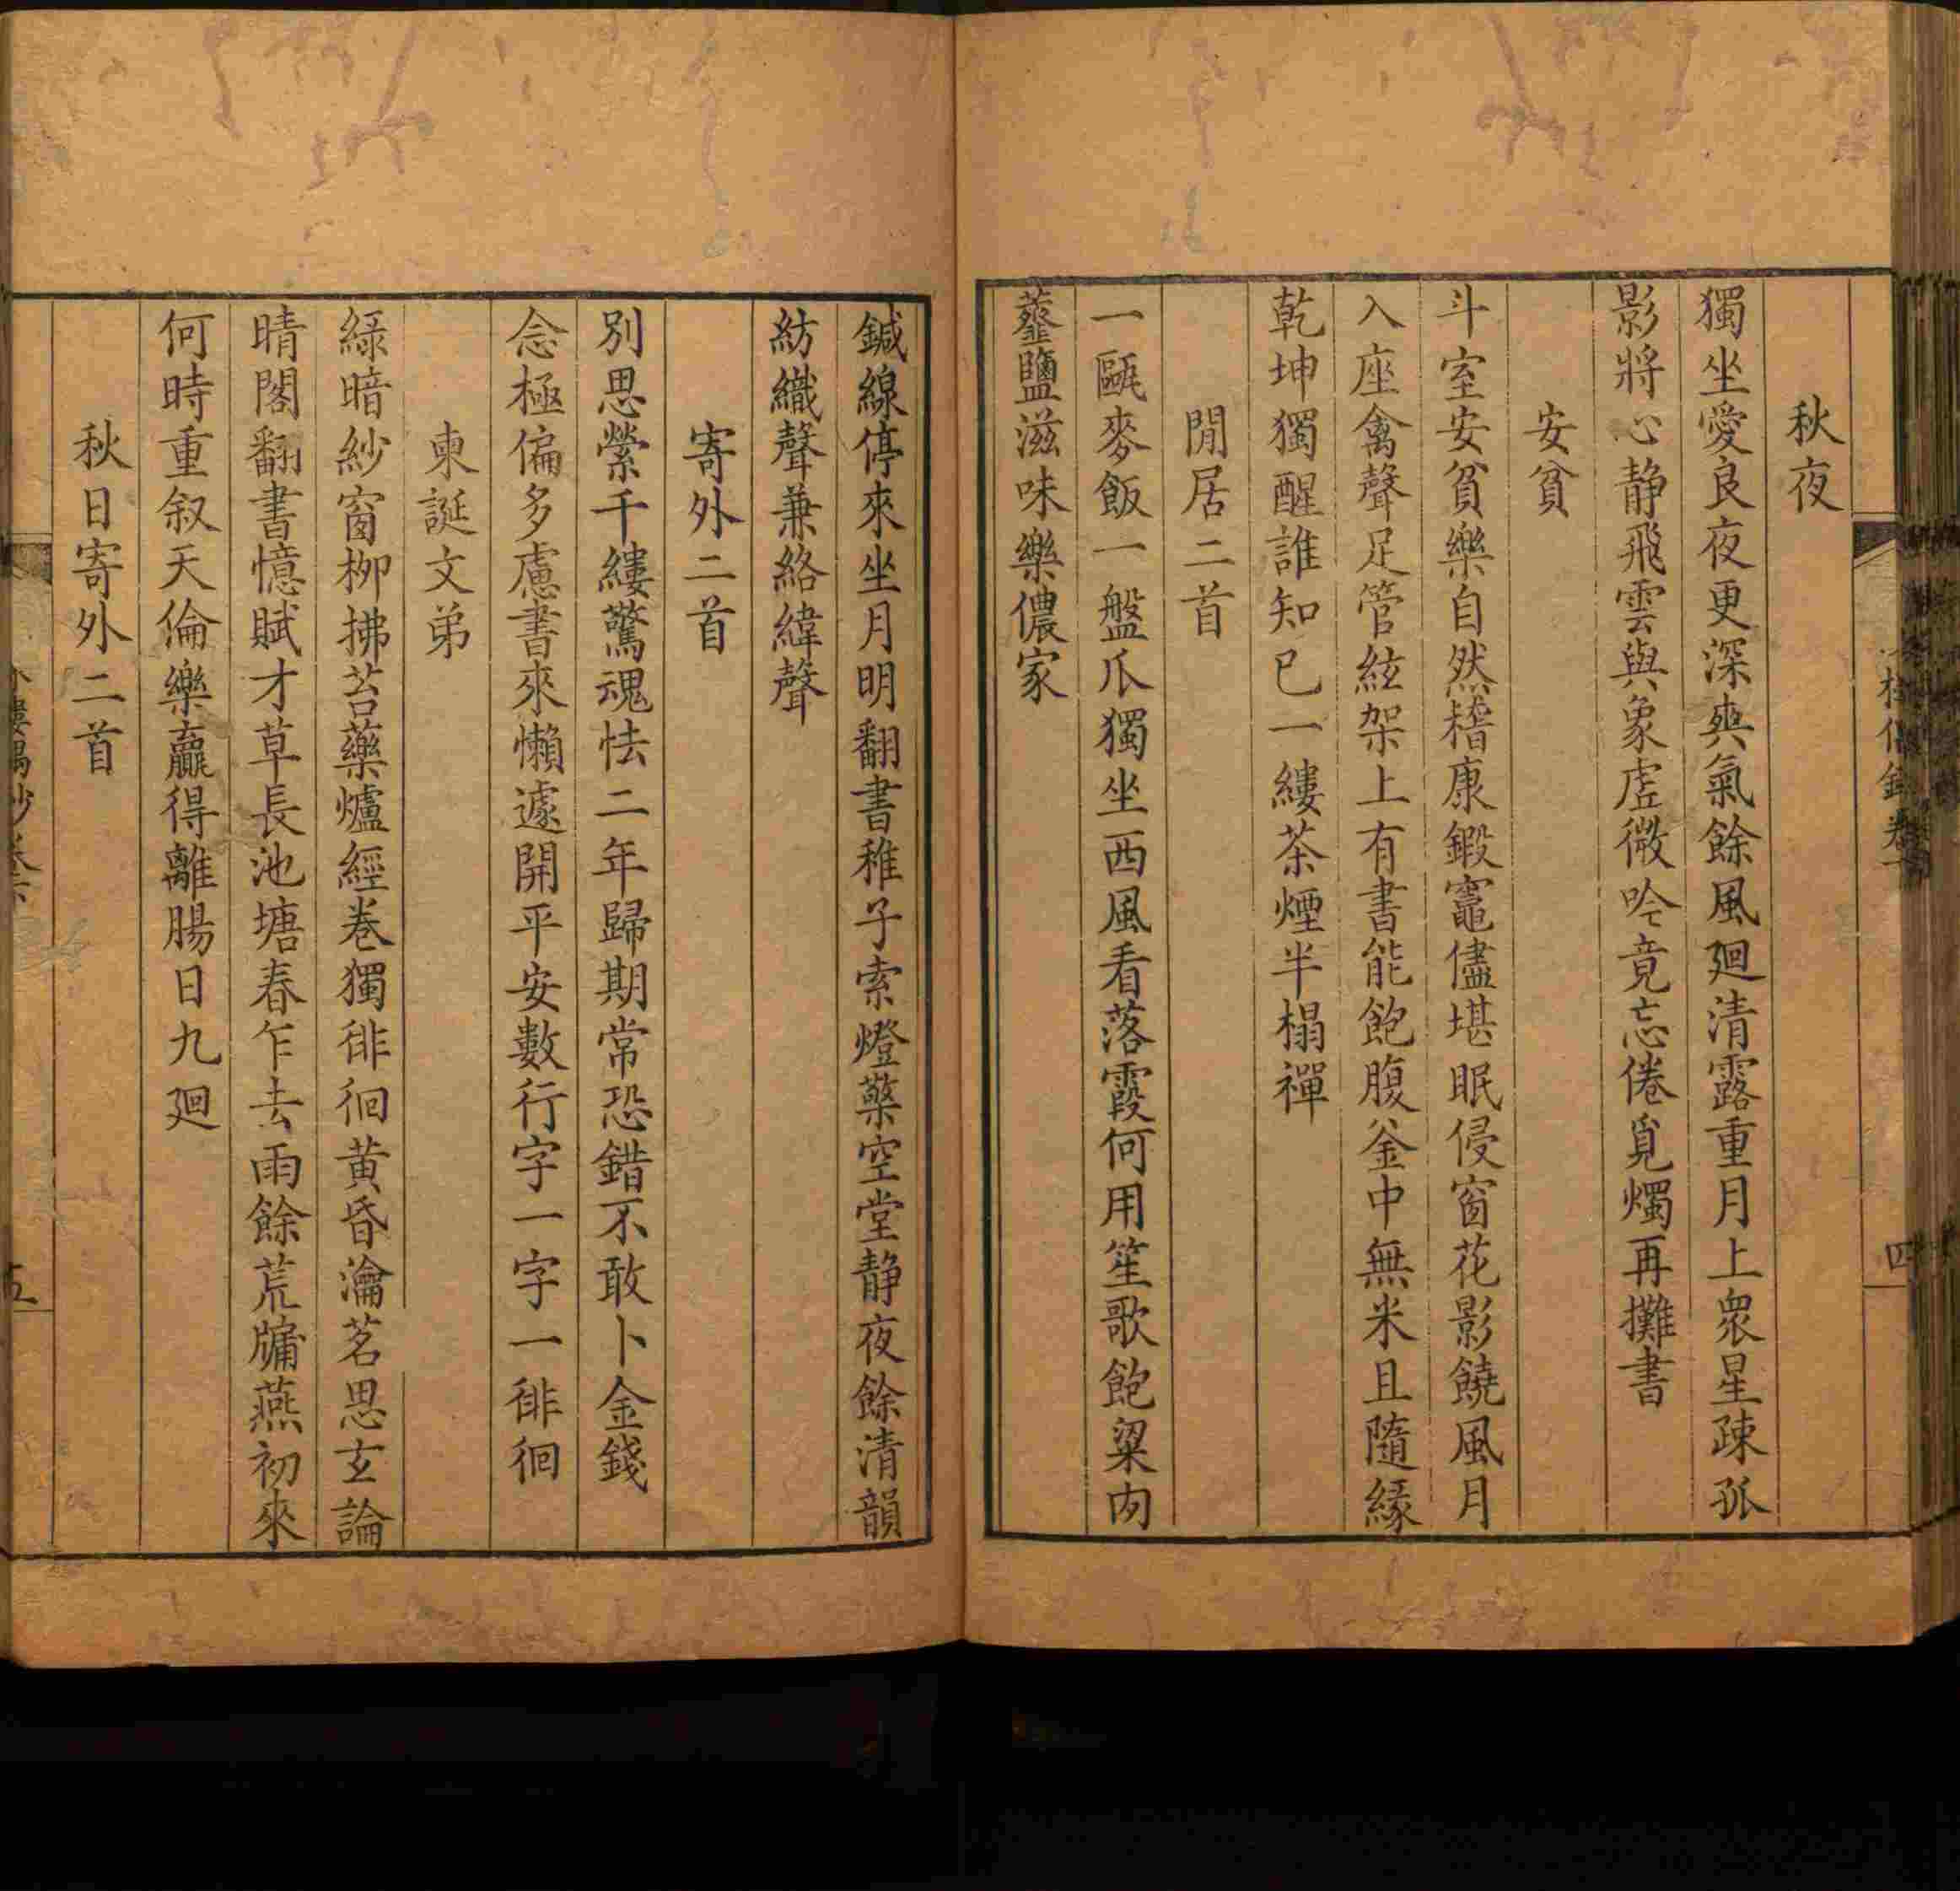 秋夜
獨坐愛良夜更深爽氣餘風廻清露重月上衆星疎孤
影將心静飛雲與象虛微吟竟忘倦覓燭再攤書
安貧
斗室安貧樂自然嵇康鍛竈儘堪眠侵窗花影饒風月
入座禽聲足管絃架上有書能飽腹釜中無米且隨緣
乾坤獨醒誰知已一縷茶煙半榻禪
閒居二首
一甌麥飯一盤瓜獨坐西風看落霞何用笙歌飽粱肉
虀鹽滋味樂儂家
四
鍼線停來坐月明翻書稚子索燈檠空堂静夜餘清韻
紡織聲兼絡緯聲
寄外二首
別思縈千縷驚魂怯二年歸期常恐錯不敢卜金錢
念極偏多慮書來懶遽開平安數行字一字一徘徊
柬誕文弟
緑暗紗窗柳拂苔藥爐經卷獨徘徊黄昏瀹茗思玄論
晴閣翻書憶賦才草長池塘春乍去雨餘荒牗燕初來
何時重叙天倫樂贏得離腸日九廻
秋日寄外二首
五